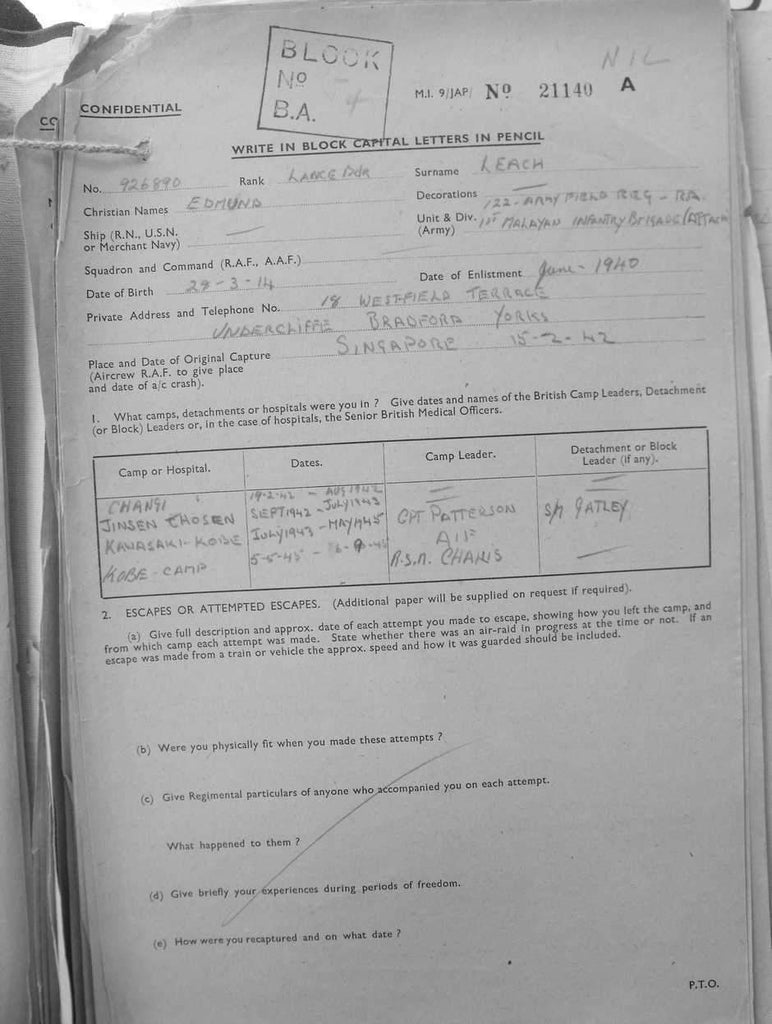 BLOCK
No
B.A. 4
NIL
M.I. 9/JAP/ No 21140 A
CONFIDENTIAL
WRITE IN BLOCK CAPITAL LETTERS IN PENCIL
No. 926890 Rank LANCE BDR Surname LEACH
Christian Names EDMUND Decorations —
122-ARMY FIELD REG - RA
Ship (R.N., U.S.N. or Merchant Navy) — Unit & Div. (Army) 1ST MALAYAN INFANTRY BRIGADE (ATTACH
Squadron and Command (R.A.F., A.A.F.)
Date of Birth 29-3-14 Date of Enlistment June - 1940
Private Address and Telephone No. 18 WESTFIELD TERRACE
UNDERCLIFFE BRADFORD YORKS
Place and Date of Original Capture SINGAPORE 15-2-42
(Aircrew R.A.F. to give place
and date of a/c crash).
1. What camps, detachments or hospitals were you in ? Give dates and names of the British Camp Leaders, Detachment
(or Block) Leaders or, in the case of hospitals, the Senior British Medical Officers.
Camp or Hospital. Dates. Camp Leader. Detachment or Block Leader (if any).
CHANGI 19-2-42 - AUG 1942 — —
JINSEN CHOSEN SEPT 1942 - JULY 1943 CPT PATTERSON S/M GATLEY
KAWASAKI-KOBE JULY 1943 - MAY 1945 AIF
KOBE-CAMP 5-5-45 - 6-9-45 R.S.M. —
2. ESCAPES OR ATTEMPTED ESCAPES. (Additional paper will be supplied on request if required).
(a) Give full description and approx. date of each attempt you made to escape, showing how you left the camp, and
from which camp each attempt was made. State whether there was an air-raid in progress at the time or not. If an
escape was made from a train or vehicle the approx. speed and how it was guarded should be included.
(b) Were you physically fit when you made these attempts ?
(c) Give Regimental particulars of anyone who accompanied you on each attempt.
What happened to them ?
(d) Give briefly your experiences during periods of freedom.
(e) How were you recaptured and on what date ?
P.T.O.